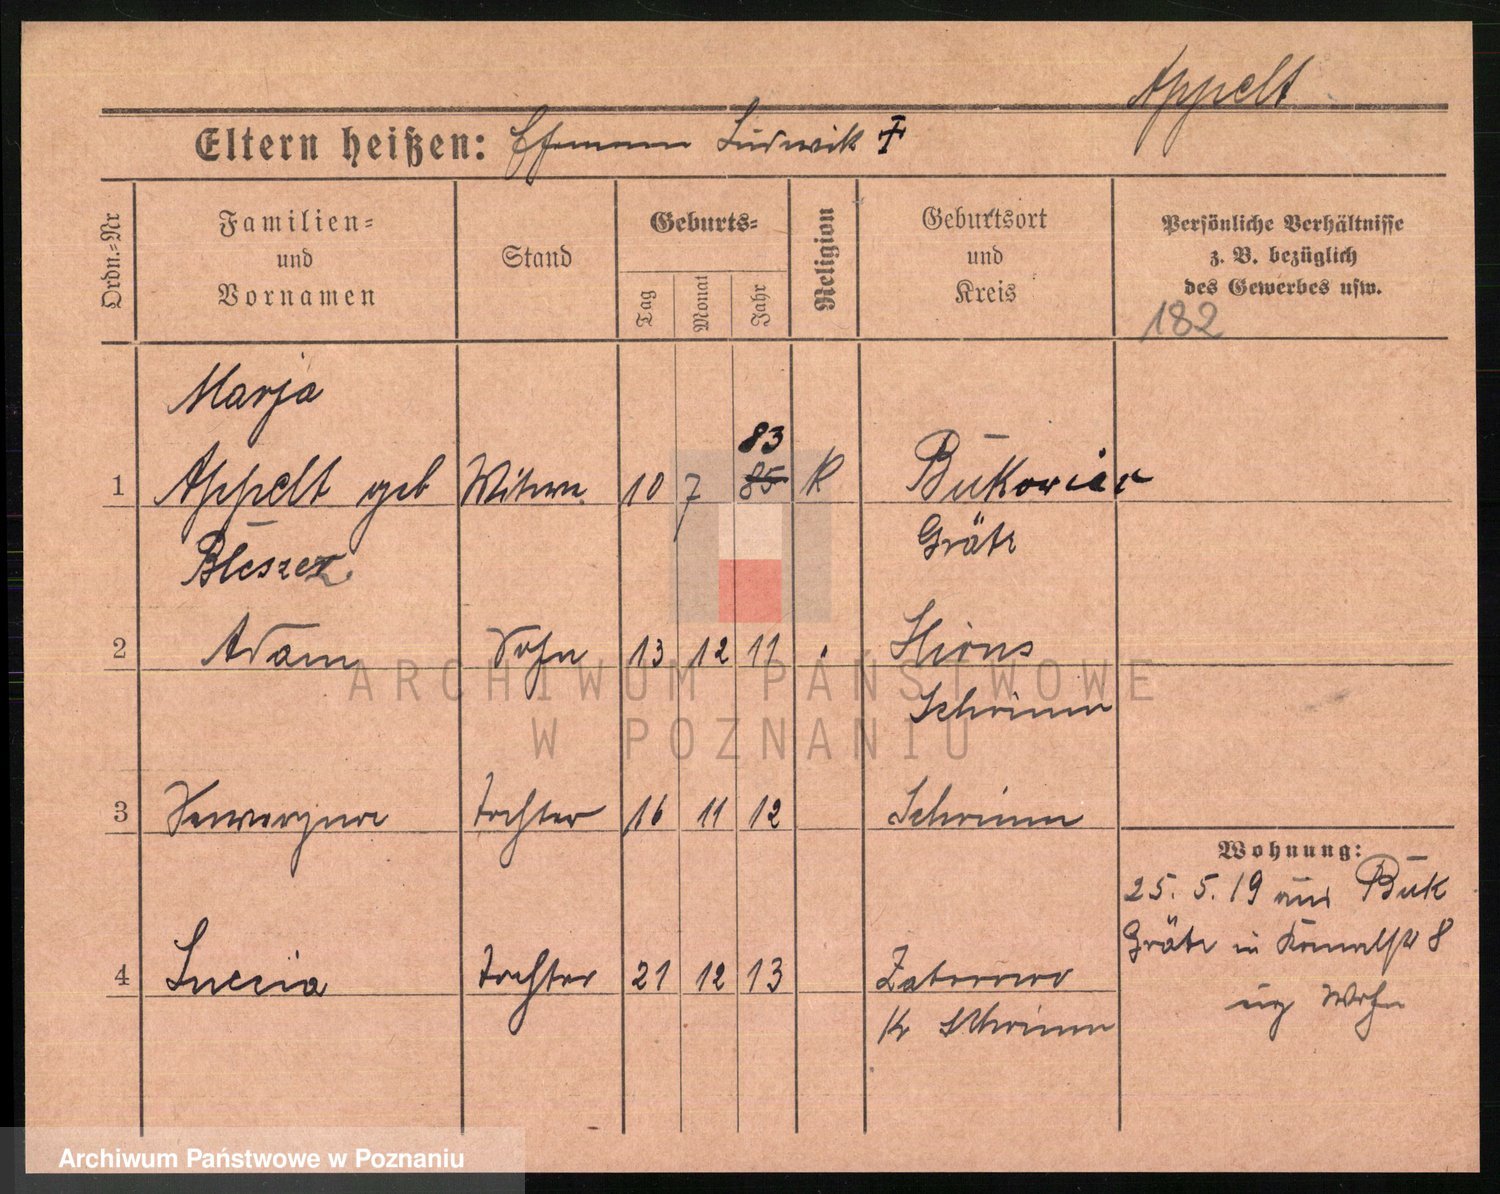 Appelt
Eltern heißen: Ehemann Ludwik †
Ordn.=Nr
Familien=
und
Vornamen
Stand
Geburts=
Tag
Monat
Jahr
Religion
Geburtsort
und
Kreis
Persönliche Verhältnisse
z. B. bezüglich
des Gewerbes usw.
182
Marja
83
1 Appelt geb Witwe 10 7 85 K Bukowiec
Bleszez Grätz
2 Adam Sohn 13 12 11 Xions
Schrimm
3 Tochter 16 11 12 Schrimm
Wohnung:
25. 5. 19 aus Buk
Grätz in 8
4 Luccia Tochter 21 12 13
Kr Schrimm
Wohn
ARCHIWUM PAŃSTWOWE
W POZNANIU
Archiwum Państwowe w Poznaniu